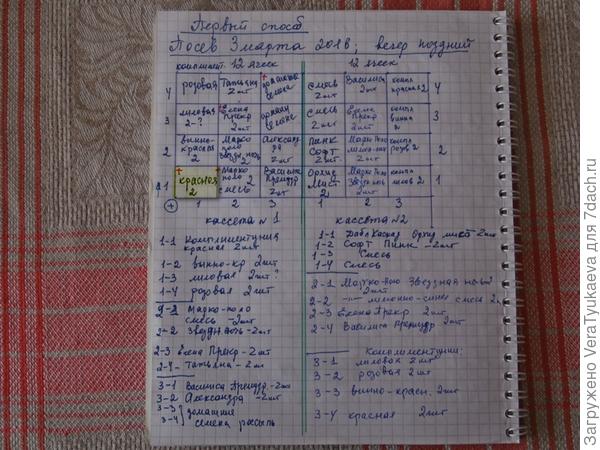 Первый способ
Посев 3 марта 2018, вечер поздний
комплимент. 12 ячеек
12 ячеек
4 розовая Татьяна 2шт домашние семена
смесь 2шт Василиса 2шт компл красная 2 4
3 лиловая 2-? Елена Прекр 2шт домашн семена
смесь 2шт Елена Прекр 2шт компл винно 2 3
2 винно-красная 2 Марко поло звездн ночь 2 Александра 2шт
Пинк Софт 2шт компл розов 2 2
1 красная 2 Марко поло смесь 2 Василиса Премудр 2шт
Орхид Мист 2 Звездн ночь компл лилов 2 1
1 2 3
1 2 3
кассета N 1
1-1 Комплиментуния красная 2шт
1-2 винно-кр 2шт
1-3 лиловая 2шт?
1-4 розовая 2шт
2-2 Марко-поло
смесь -2шт
2-2 Звездн ночь -2шт
2-3 Елена Прекр -2шт
2-4- Татьяна -2шт
3-1 Василиса Премудр.-2шт
3-2 Александра -2шт
3-3 домашние
3-4 семена россыпь
кассета N2
1-1 Дабл Каскад Орхид мист 2шт
1-2 Софт Пинк -2шт
1-3 Смесь
1-4 Смесь
2-1 Марко-поло Звездная ночь
2шт
2-2 -"- лимонно-синие смесь 2
2-3 Елена Прекр 2шт
2-4 Василиса Премудр 2шт
Комплиментуния:
3-1 лиловая 2шт
3-2 розовая 2шт
3-3 винно-красн. 2шт
3-4 красная 2шт
Загружено VeraTyukaeva для 7dach.ru